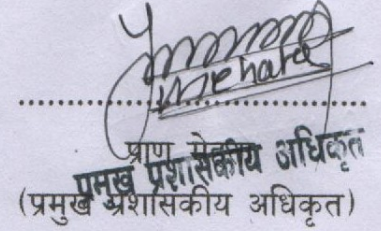 mehara
प्राण
प्रमुख प्रशासकीय अधिकृत
(प्रमुख प्रशासकीय अधिकृत)